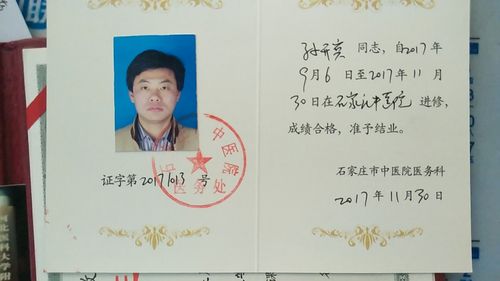 同志，自2017年
9月6日至2017年11月
30日在石家庄中医院进修，
成绩合格，准予结业。
石家庄市中医院医务科
2017年11月30日
证字第20171013号
中医院
医务处
河北医科大学附